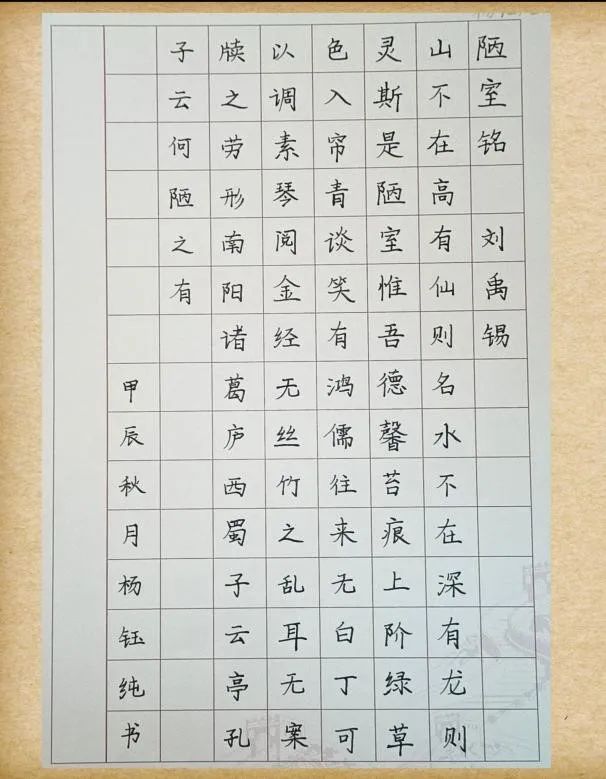 陋室铭 刘禹锡
山不在高有仙则名水不在深有龙则
灵斯是陋室惟吾德馨苔痕上阶绿草
色入帘青谈笑有鸿儒往来无白丁可
以调素琴阅金经无丝竹之乱耳无案
牍之劳形南阳诸葛庐西蜀子云亭孔
子云何陋之有
甲辰秋月杨钰纯书